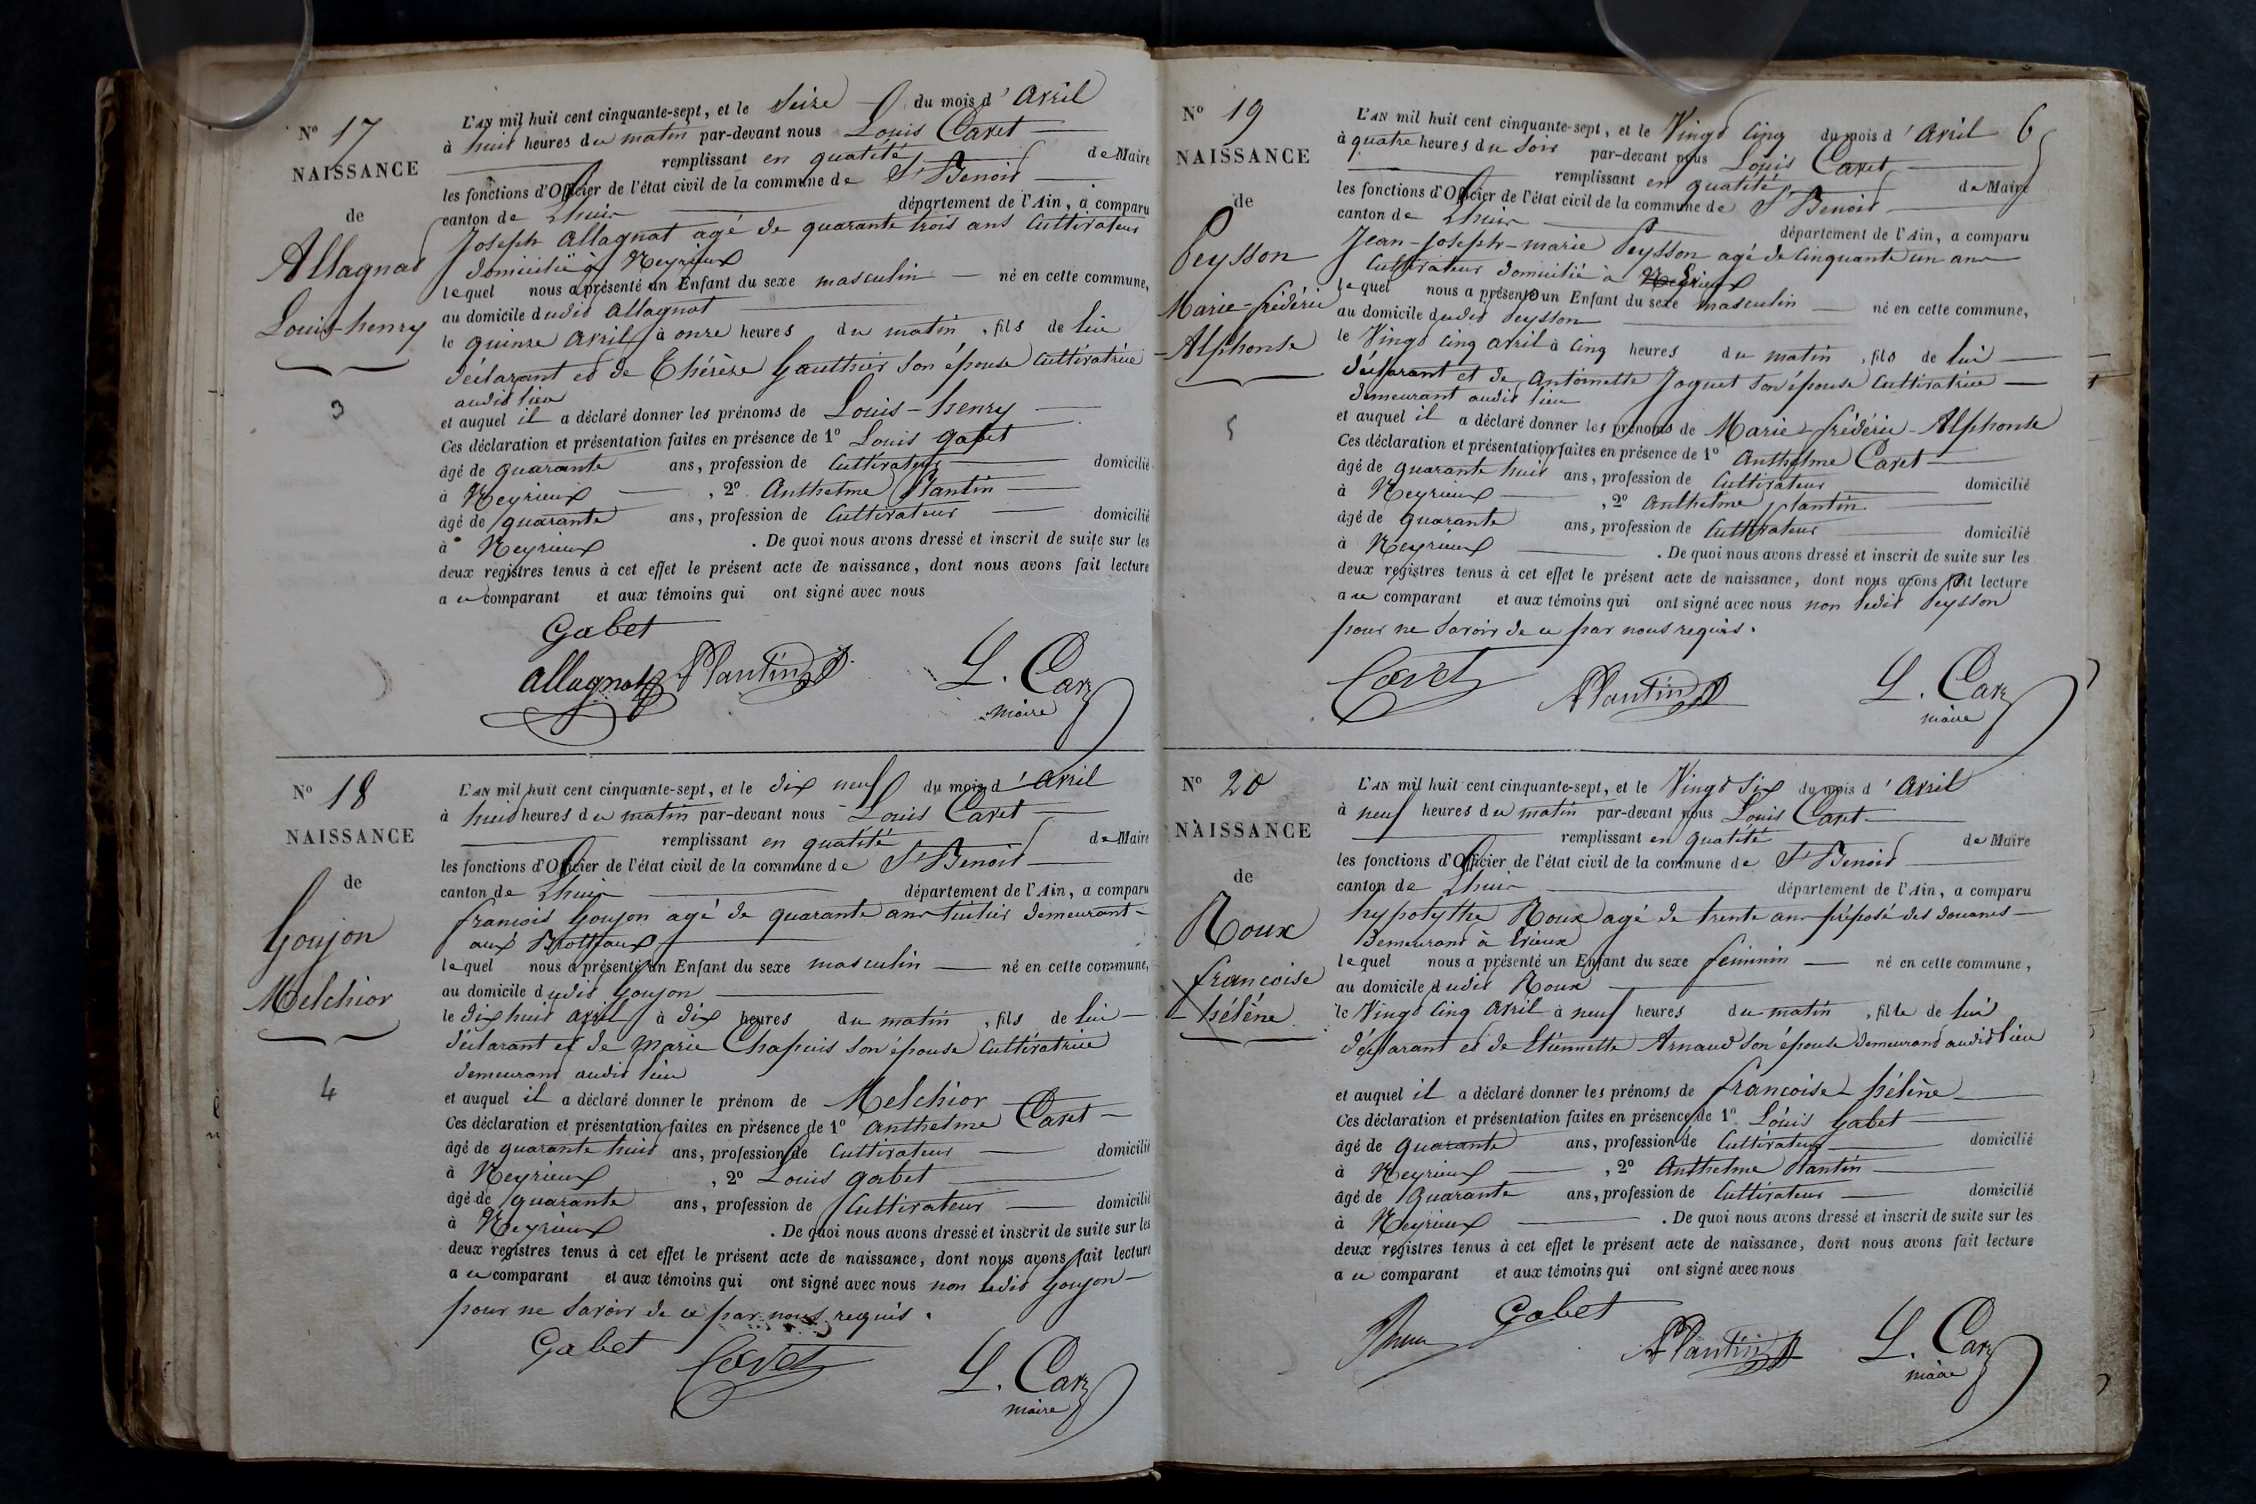 N° 17
NAISSANCE
de
Allagnat
Louis-henry
3
L'AN mil huit cent cinquante-sept, et le Seize du mois d'Avril
à huit heures du matin par-devant nous Louis Cavet
remplissant en qualité de Maire
les fonctions d'Officier de l'état civil de la commune de St Benoit
canton de Lhuis département de l'Ain, a comparu
Joseph Allagnat agé de quarante trois ans Cultivateur
domicilié à Neyrieux
lequel nous a présenté un Enfant du sexe masculin né en cette commune,
au domicile dudit Allagnat
le quinze Avril à onze heures du matin, fils de lui
déclarant et de Thérèse Gauthier son épouse Cultivatrice
audit lieu
et auquel il a déclaré donner les prénoms de Louis-henry
Ces déclaration et présentation faites en présence de 1° Louis Gabet
âgé de quarante ans, profession de Cultivateur domicilié
à Neyrieux, 2° Anthelme Plantin
âgé de quarante ans, profession de Cultivateur domicilié
à Neyrieux. De quoi nous avons dressé et inscrit de suite sur les
deux registres tenus à cet effet le présent acte de naissance, dont nous avons fait lecture
au comparant et aux témoins qui ont signé avec nous
Gabet
Allagnat Plantin L. Cavet
maire
N° 18
NAISSANCE
de
Goujon
Melchior
4
L'AN mil huit cent cinquante-sept, et le dix neuf du mois d'Avril
à huit heures du matin par-devant nous Louis Cavet
remplissant en qualité de Maire
les fonctions d'Officier de l'état civil de la commune de St Benoit
canton de Lhuis département de l'Ain, a comparu
francois Goujon agé de quarante ans tuilier demeurant
aux Brotteaux
lequel nous a présenté un Enfant du sexe masculin né en cette commune,
au domicile dudit Goujon
le dix huit avril à dix heures du matin, fils de lui
déclarant et de Marie Chapuis son épouse Cultivatrice
demeurant audit lieu
et auquel il a déclaré donner le prénom de Melchior
Ces déclaration et présentation faites en présence de 1° Anthelme Cavet
âgé de quarante huit ans, profession de Cultivateur domicilié
à Neyrieux, 2° Louis Gabet
âgé de quarante ans, profession de Cultivateur domicilié
à Neyrieux. De quoi nous avons dressé et inscrit de suite sur les
deux registres tenus à cet effet le présent acte de naissance, dont nous avons fait lecture
au comparant et aux témoins qui ont signé avec nous non ledit Goujon
pour ne savoir de ce par nous requis.
Gabet Cavet L. Cavet
maire
6
N° 19
NAISSANCE
de
Peysson
Marie-frédéric
Alphonse
5
L'AN mil huit cent cinquante-sept, et le Vingt Cinq du mois d'Avril
à quatre heures du Soir par-devant nous Louis Cavet
remplissant en qualité de Maire
les fonctions d'Officier de l'état civil de la commune de St Benoit
canton de Lhuis département de l'Ain, a comparu
Jean-Joseph-marie Peysson agé de Cinquante un ans
Cultivateur domicilié à
lequel nous a présenté un Enfant du sexe masculin né en cette commune,
au domicile dudit Peysson
le Vingt Cinq Avril à Cinq heures du matin, fils de lui
déclarant et de Antoinette Joguet son épouse Cultivatrice
demeurant audit lieu
et auquel il a déclaré donner les prénoms de Marie-frédéric-Alphonse
Ces déclaration et présentation faites en présence de 1° Anthelme Cavet
âgé de quarante huit ans, profession de Cultivateur domicilié
à Neyrieux, 2° Anthelme Plantin
âgé de quarante ans, profession de Cultivateur domicilié
à Neyrieux. De quoi nous avons dressé et inscrit de suite sur les
deux registres tenus à cet effet le présent acte de naissance, dont nous avons fait lecture
au comparant et aux témoins qui ont signé avec nous non ledit Peysson
pour ne savoir de ce par nous requis.
Cavet Plantin L. Cavet
maire
N° 20
NAISSANCE
de
Roux
francoise
hélène
L'AN mil huit cent cinquante-sept, et le Vingt Six du mois d'Avril
à neuf heures du matin par-devant nous Louis Cavet
remplissant en qualité de Maire
les fonctions d'Officier de l'état civil de la commune de St Benoit
canton de Lhuis département de l'Ain, a comparu
hypolythe Roux agé de trente ans préposé des douanes
demeurant à Evieux
lequel nous a présenté un Enfant du sexe féminin né en cette commune,
au domicile dudit Roux
le Vingt Cinq Avril à neuf heures du matin, fille de lui
déclarant et de Etiennette Arnaud son épouse demeurant audit lieu
et auquel il a déclaré donner les prénoms de francoise-hélène
Ces déclaration et présentation faites en présence de 1° Louis Gabet
âgé de quarante ans, profession de Cultivateur domicilié
à Neyrieux, 2° Anthelme Plantin
âgé de quarante ans, profession de Cultivateur domicilié
à Neyrieux. De quoi nous avons dressé et inscrit de suite sur les
deux registres tenus à cet effet le présent acte de naissance, dont nous avons fait lecture
au comparant et aux témoins qui ont signé avec nous
Roux Gabet Plantin L. Cavet
maire